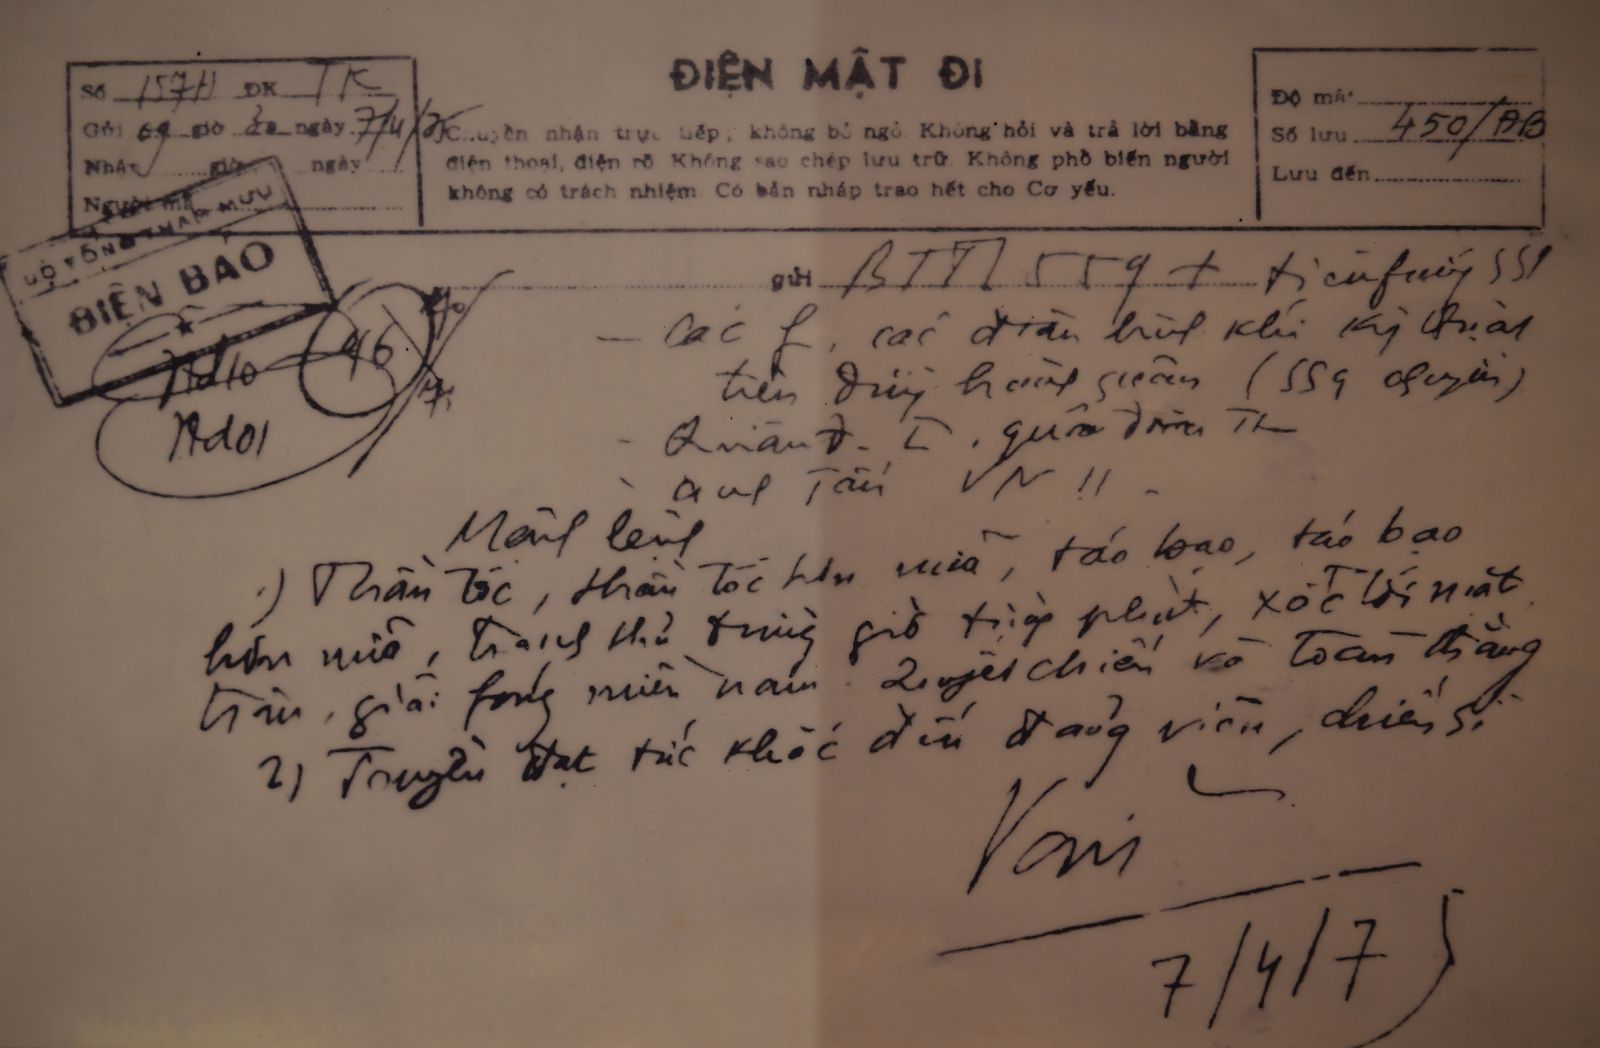 ĐIỆN MẬT ĐI
Số 157H ĐK TK
Gửi 09 giờ ngày 7/4/75
Nhận giờ ngày
Người mã
Chuyển nhận trực tiếp, không bỏ ngỏ. Không hỏi và trả lời bằng
điện thoại, điện rõ Không sao chép lưu trữ. Không phổ biến người
không có trách nhiệm. Có bản nháp trao hết cho Cơ yếu.
Độ mật
Số lưu 450/ĐB
Lưu đến
BỘ TỔNG THAM MƯU
ĐIỆN BÁO
46
Ad01
gửi BTTL 559 +
- các f, các đoàn binh khí kỹ thuật
trên đường hành quân (559 chuyển)
- Quân đ. I, quân đoàn
- anh Tấn VN !! -
Mệnh lệnh
1) Thần tốc, thần tốc hơn nữa, táo bạo, táo bạo
hơn nữa, tranh thủ từng giờ từng phút, xốc tới mặt
trận, giải fóng miền nam. Quyết chiến và toàn thắng
2) Truyền đạt tức khắc đến đảng viên, chiến sĩ
Văn
7/4/75